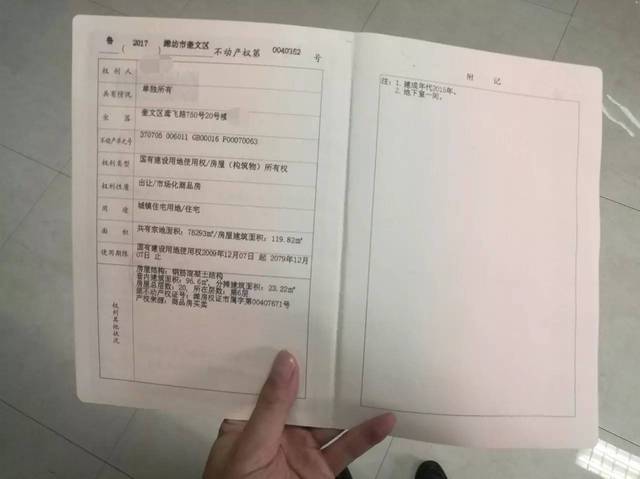 鲁 ( 2017 ) 潍坊市奎文区 不动产权第 0040152 号
权利人
共有情况 单独所有
坐落 奎文区鸢飞路750号20号楼
不动产单元号 370705 006011 GB00016 F00070063
权利类型 国有建设用地使用权/房屋(构筑物)所有权
权利性质 出让/市场化商品房
用途 城镇住宅用地/住宅
面积 共有宗地面积:78293㎡/房屋建筑面积:119.82㎡
使用期限 国有建设用地使用权2009年12月07日 起 2079年12月
07日 止
权利其他状况
房屋结构:钢筋混凝土结构
套内建筑面积:96.6㎡,分摊建筑面积:23.22㎡
房屋总层数:20,所在层数:第6层
原不动产权证号:潍房权证市属字第00407671号
产权来源:商品房买卖
附 记
注:1、建成年代2015年、
2、地下室一间。